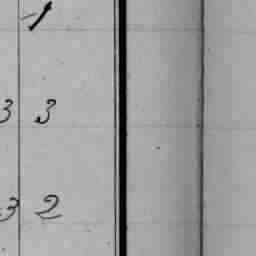 1
3 3
3 2